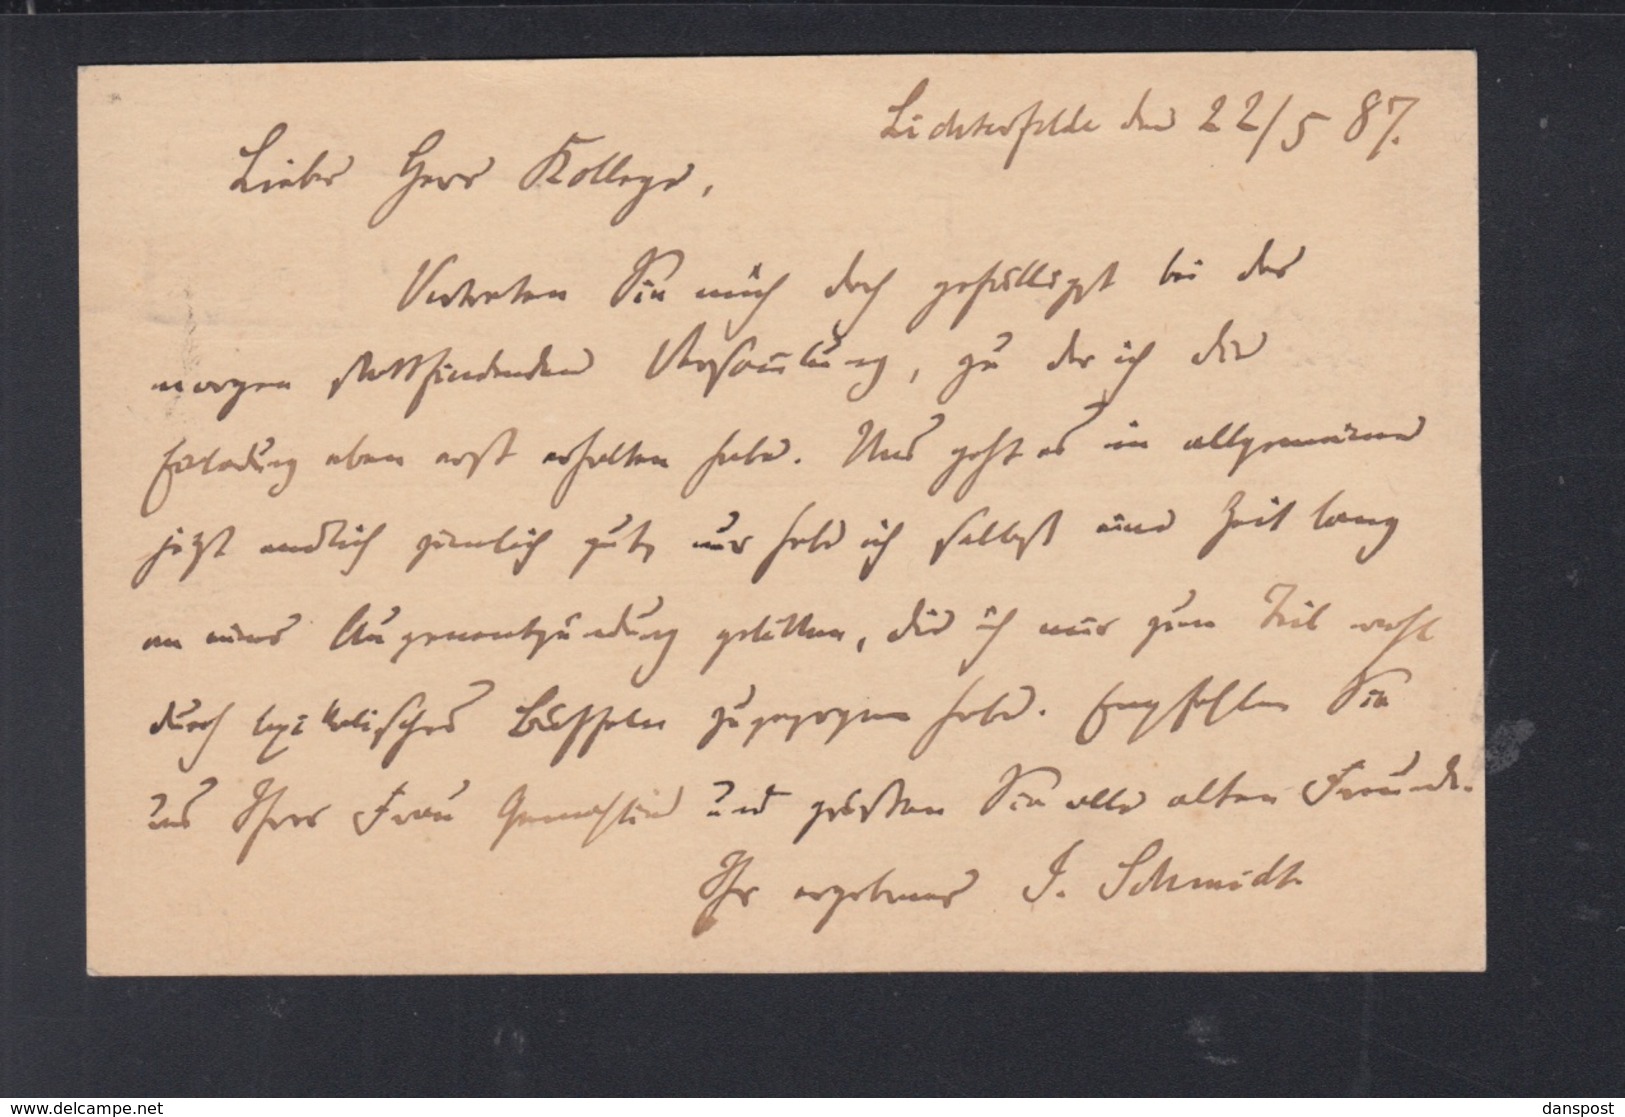 Lichterfelde den 22/5 87.
Lieber Herr Kollege,
Vertreten Sie mich doch gefälligst bei der
morgen stattfindenden Versam̅lung, zu der ich die
Einladung eben erst erhalten habe. Uns geht es im allgemeinen
jetzt endlich ziemlich gut, nur habe ich selbst eine Zeit lang
an einer Augenentzündung gelitten, die ich mir zum Teil wohl
durch lexikalisches Büffeln zugezogen habe. Empfehlen Sie
uns Ihrer Frau Gemahlin und grüssen Sie alle alten Freunde.
Ihr ergebener J. Schmidt.
www.delcampe.net
danspost